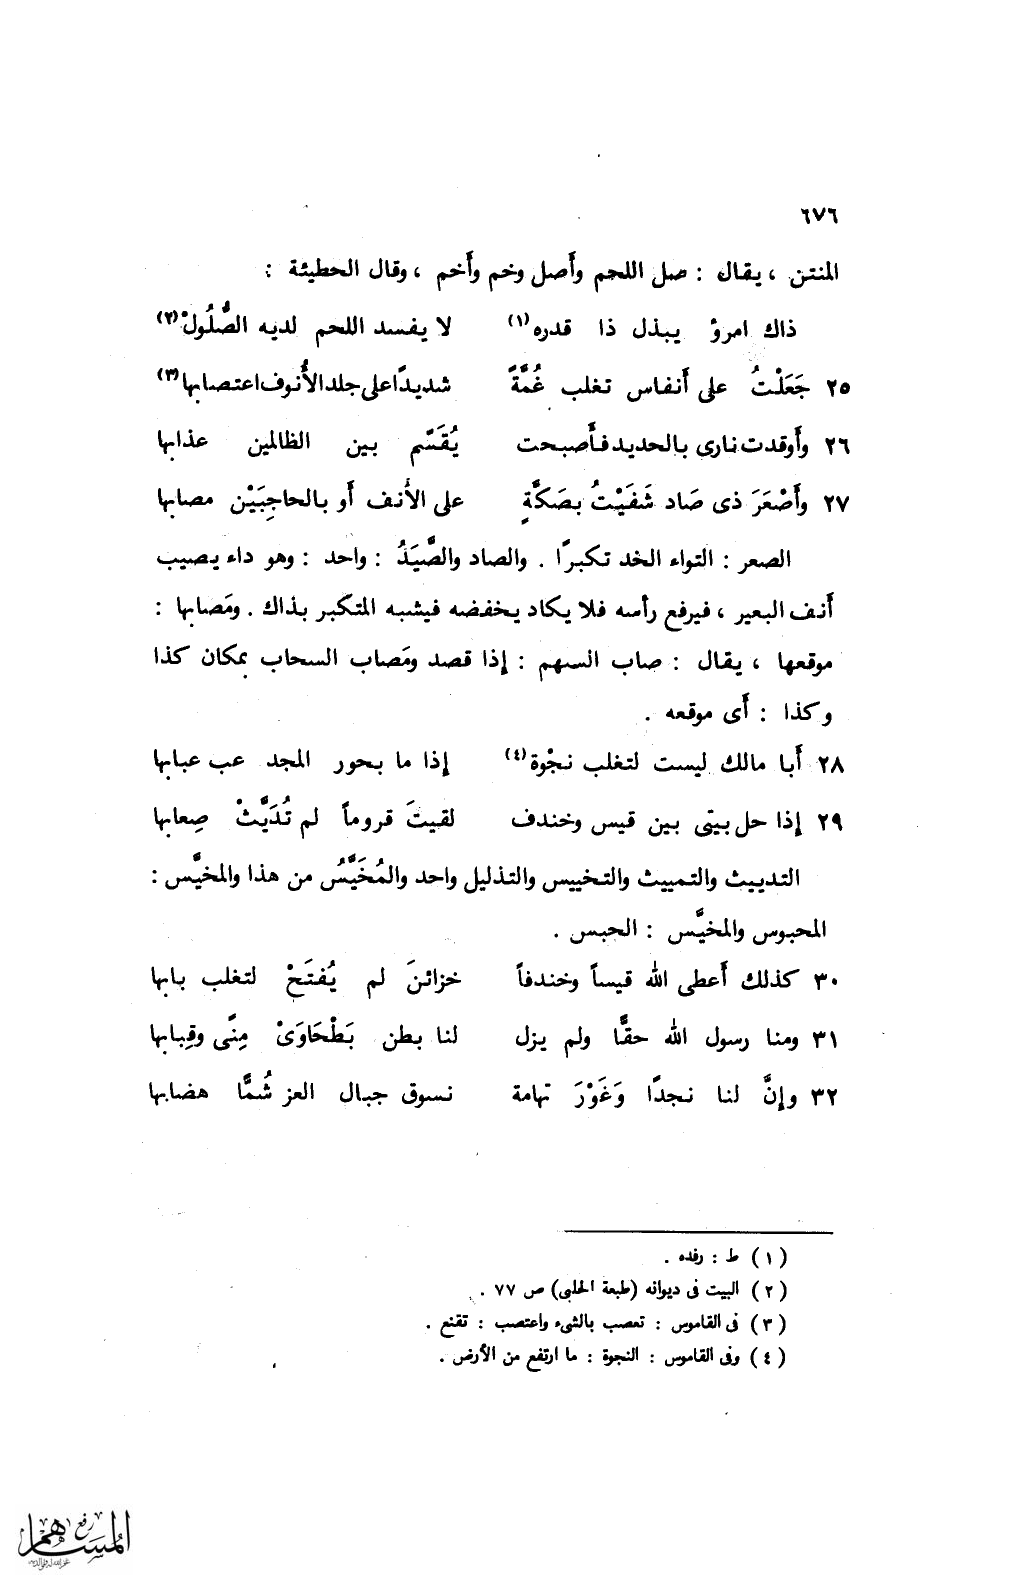 ٦٧٦
المنتن ، يقال : صل اللحم وأَصل وخم وأَخم ، وقال الحطيئة :
ذاك امرؤ يبذل ذا قدره(١) لا يفسد اللحم لديه الصُّلُولْ(٢)
٢٥ جَعَلْتُ على أَنفاس تغلب غُمَّةً شديدًا على جلد الأُنوف اعتصابها(٣)
٢٦ وأَوقدت نارى بالحديد فأَصبحت يُقَسَّم بين الظالمين عذابها
٢٧ وأَصْعَرَ ذى صَاد شَفَيْتُ بصَكَّةٍ على الأَنف أَو بالحاجِبَيْن مصابها
الصعر : التواء الخد تكبرًا . والصاد والصَّيَدُ : واحد : وهو داء يصيب
أَنف البعير ، فيرفع رأسه فلا يكاد يخفضه فيشبه المتكبر بذاك . ومَصابها :
موقعها ، يقال : صاب السهم : إذا قصد ومَصاب السحاب بمكان كذا
وكذا : أَى موقعه .
٢٨ أَبا مالك ليست لتغلب نجْوة(٤) إذا ما بحور المجد عب عبابها
٢٩ إذا حل بيتى بين قيس وخندف لقيتَ قروماً لم تُدَيَّثْ صِعابها
التدييث والتمييث والتخييس والتذليل واحد والمُخَيَّسُ من هذا والمخيَّس :
المحبوس والمخيَّس : الحبس .
٣٠ كذلك أَعطى الله قيساً وخندفاً خزائنَ لم يُفتَحْ لتغلب بابها
٣١ ومنا رسول الله حقًّا ولم يزل لنا بطن بَطْحَاوَىْ مِنًى وقِبابها
٣٢ وإنَّ لنا نجدًا وَغَوْرَ تهامة نسوق جبال العز شُمًّا هضابها
(١) ط : رفده .
(٢) البيت فى ديوانه (طبعة الحلبى) ص ٧٧ .
(٣) فى القاموس : تعصب بالشىء واعتصب : تقنع .
(٤) وفى القاموس : النجوة : ما ارتفع من الأرض .